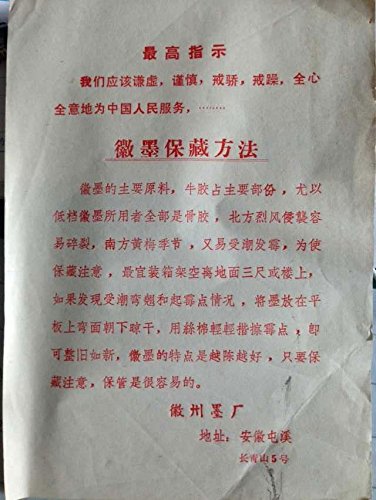 最高指示
我们应该谦虚，谨慎，戒骄，戒躁，全心
全意地为中国人民服务，········
徽墨保藏方法
徽墨的主要原料，牛胶占主要部份，尤以
低档徽墨所用者全部是骨胶，北方烈风侵襲容
易碎裂，南方黄梅季节，又易受潮发霉，为使
保藏注意，最宜装箱架空离地面三尺或楼上，
如果发现受潮弯烟和起霉点情况，将墨放在平
板上弯面朝下晾干，用絲棉輕輕揩擦霉点；即
可整旧如新，徽墨的特点是越陈越好，只要保
藏注意，保管是很容易的。
徽州墨厂
地址：安徽屯溪
长青山5号